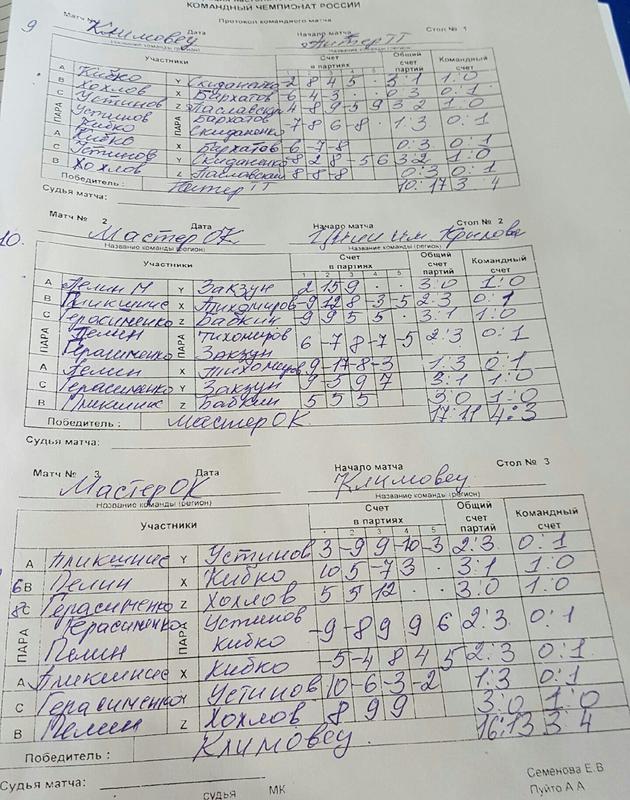 КОМАНДНЫЙ ЧЕМПИОНАТ РОССИИ
Протокол командного матча
9 Матч № Дата Начало матча Стол № 1
Климовец Питер ТТ
Название команды (регион) Название команды (регион)
Участники Счет в партиях Общий счет партий Командный счет
1 2 3 4 5
A Кибко Y Скиданенко 2 8 4 5 · 3:1 1:0
B Хохлов X Бархатов 6 4 3 · · 0:3 0:1
C Устинов Z Паславская 4 -8 9 -5 9 3:2 1:0
ПАРА Устинов Кибко ПАРА Бархатов Скиданенко -7 -8 6 -8 · 1:3 0:1
A Кибко X Бархатов 6 -7 -8 0:3 0:1
C Устинов Y Скиданенко -8 2 8 -5 6 3:2 1:0
B Хохлов Z Паславская -8 -8 -8 0:3 0:1
Победитель : Питер ТТ 10:17 3:4
Судья матча:
10. Матч № 2 Дата Начало матча Стол № 2
МастерОК ЦНИИ им. Крылова
Название команды (регион) Название команды (регион)
Участники Счет в партиях Общий счет партий Командный счет
1 2 3 4 5
A Пелин М Y Закзун 2 15 9 · · 3:0 1:0
B X Тихомиров -9 12 8 -3 -5 2:3 0:1
C Герасименко Z Бабкин -9 9 5 5 · 3:1 1:0
ПАРА Пелин Герасименко ПАРА Тихомиров Закзун 6 -7 8 -7 -5 2:3 0:1
A Пелин X Тихомиров 9 -17 -8 -3 1:3 0:1
C Герасименко Y Закзун -5 9 7 3:1 1:0
B Z Бабкин 5 5 5 3:0 1:0
Победитель : МастерОК 17:11 4:3
Судья матча:
Матч № 3 Дата Начало матча Стол № 3
МастерОК Климовец
Название команды (регион) Название команды (регион)
Участники Счет в партиях Общий счет партий Командный счет
1 2 3 4 5
A Y Устинов 3 -9 9 -10 -3 2:3 0:1
6 B Пелин X Кибко 10 5 -7 3 · 3:1 1:0
8 C Герасименко Z Хохлов 5 5 12 · · 3:0 1:0
ПАРА Герасименко Пелин ПАРА Устинов Кибко -9 -8 9 9 6 2:3 0:1
A X Кибко -5 -4 8 4 5 2:3 0:1
C Герасименко Y Устинов 10 -6 -3 -2 1:3 0:1
B Пелин Z Хохлов 8 9 9 3:0 1:0
Победитель : Климовец 16:13 3:4
Судья матча:
судья МК
Семенова Е.В
Пуйто А А